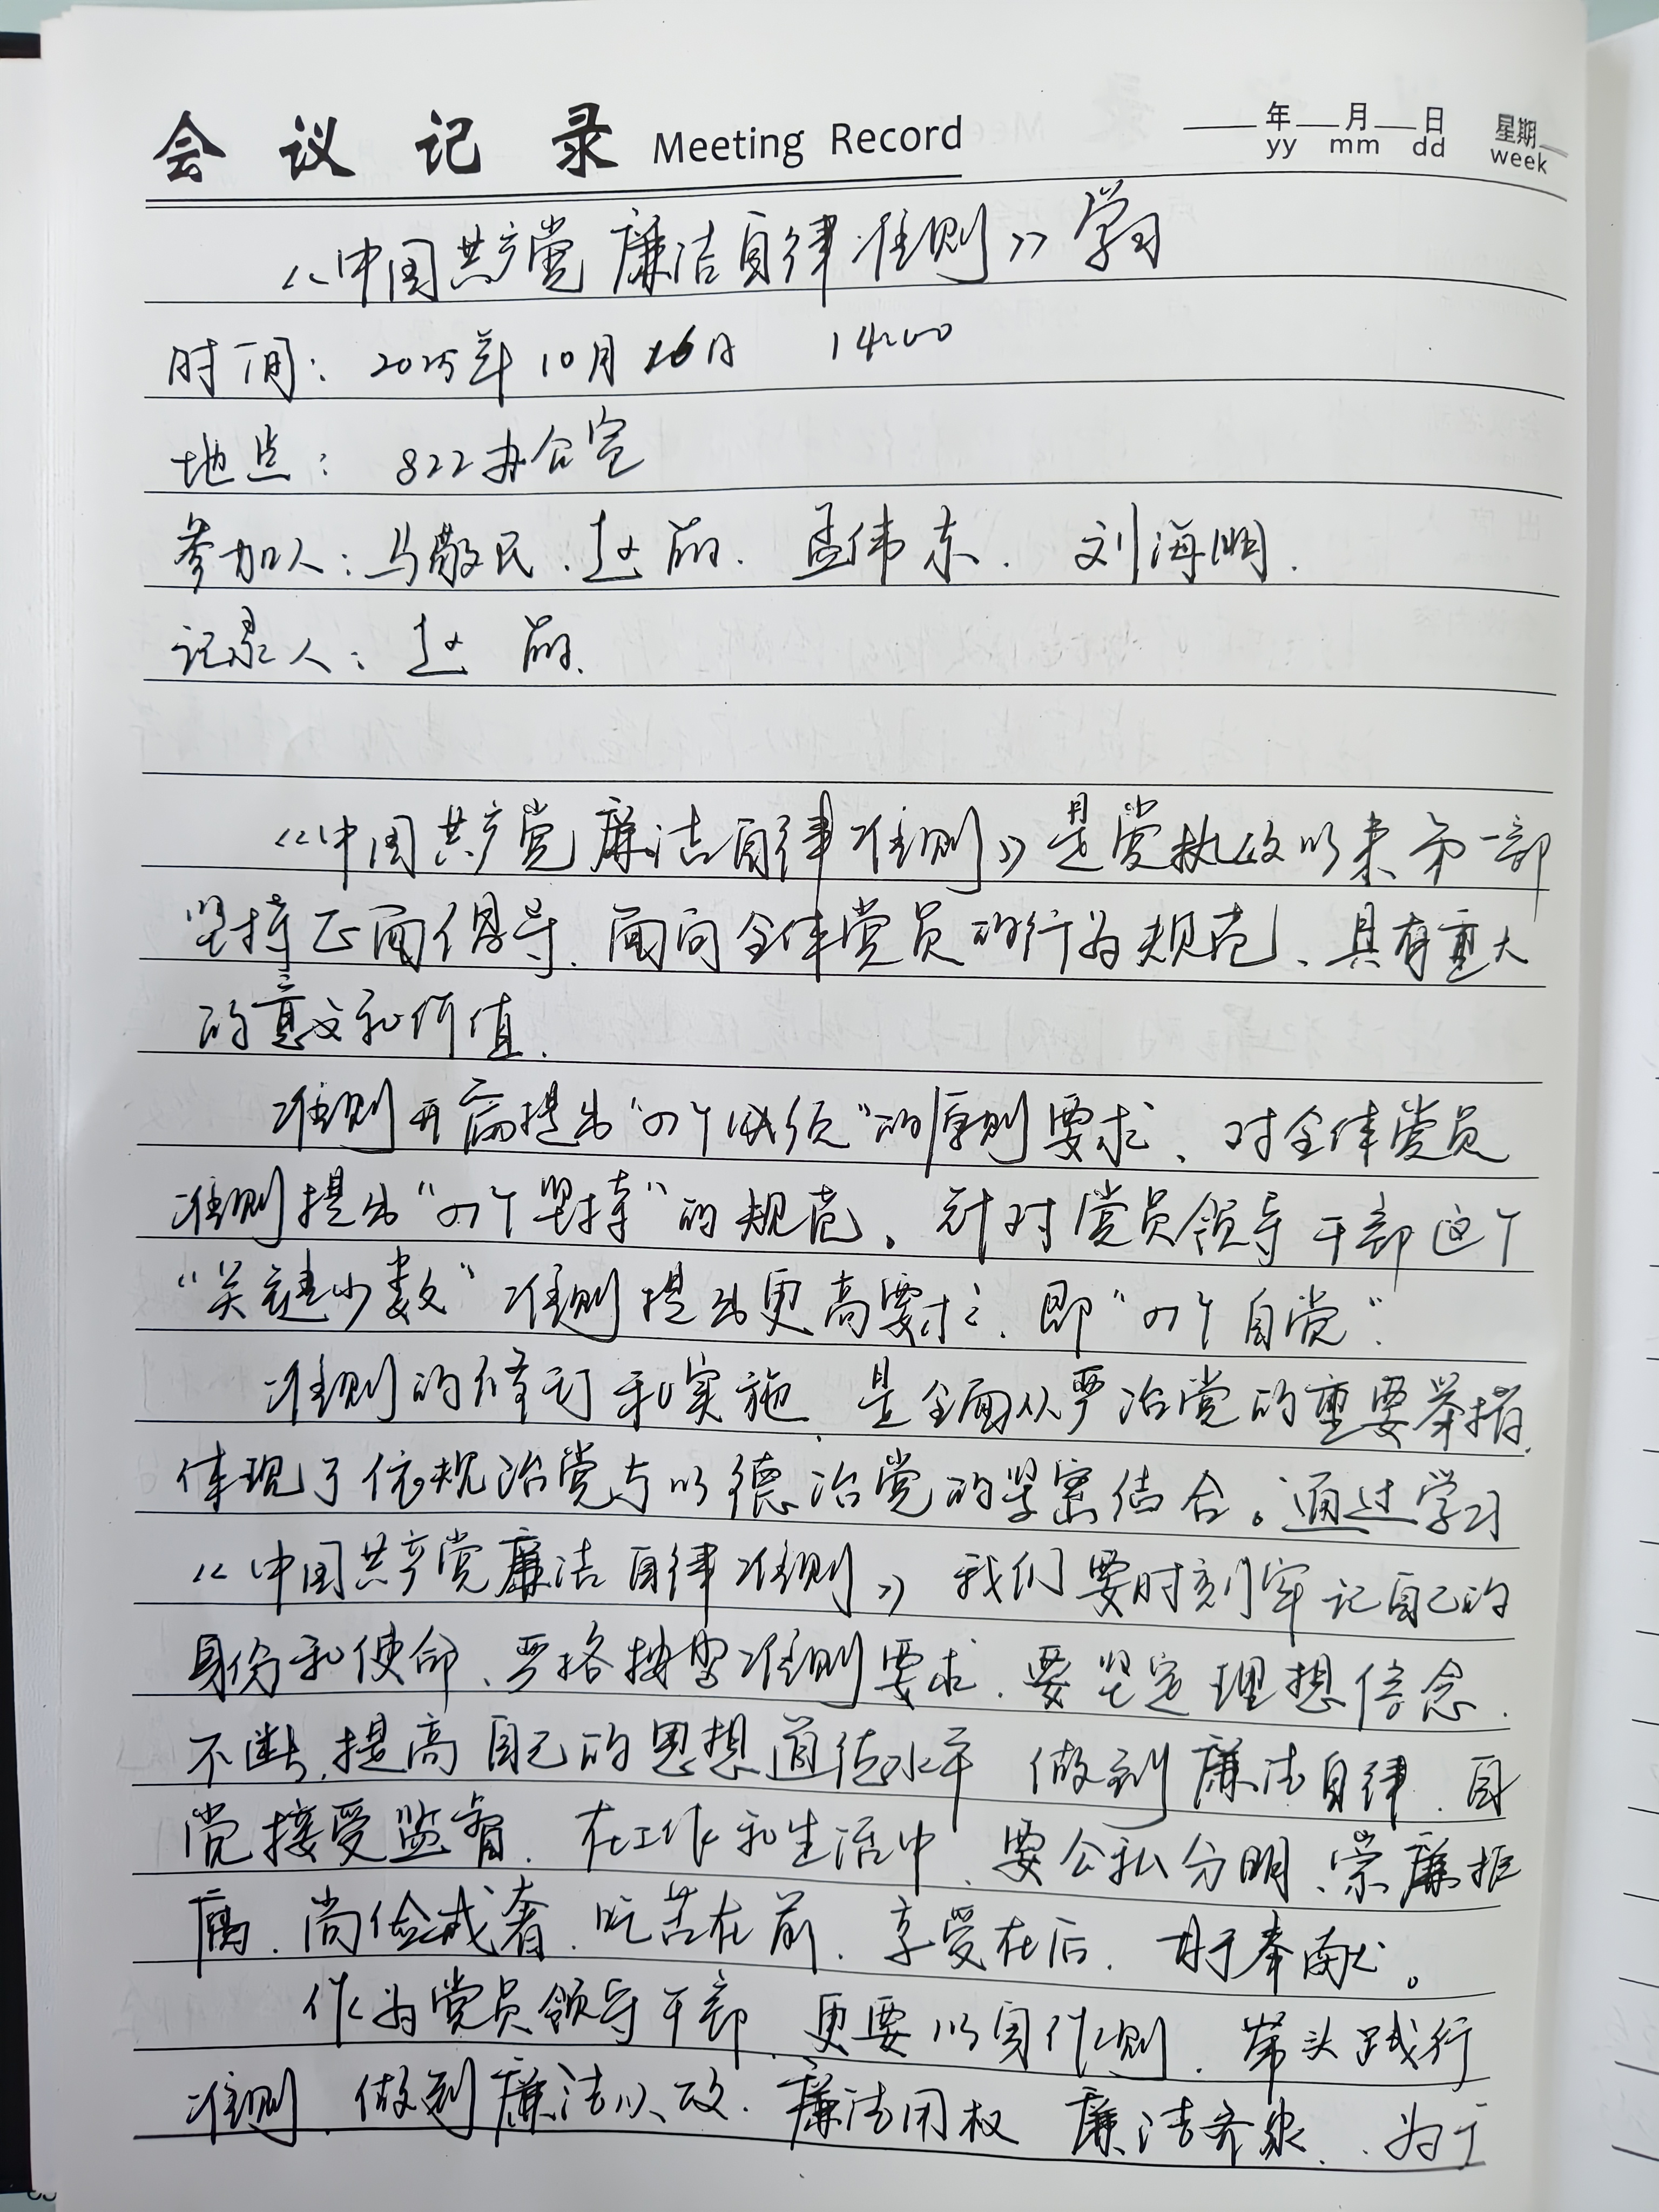 会议记录 Meeting Record 年 月 日 星期
yy mm dd week
《中国共产党廉洁自律准则》学习
时间：2025年10月16日 14:00
地点：822办公室
参加人：马敬民、赵萌、孟伟东、刘海鹏.
记录人：赵萌.
《中国共产党廉洁自律准则》是党执政以来第一部
坚持正面倡导、面向全体党员的行为规范、具有重大
的意义和价值.
准则开篇提出"四个必须"的原则要求、对全体党员
准则提出"四个坚持"的规范。针对党员领导干部这个
"关键少数"准则提出更高要求、即"四个自觉".
准则的修订和实施、是全面从严治党的重要举措、
体现了依规治党与以德治党的紧密结合。通过学习
《中国共产党廉洁自律准则》我们要时刻牢记自己的
身份和使命、严格按照准则要求、要坚定理想信念、
不断提高自己的思想道德水平 做到廉洁自律、自
觉接受监督、在工作和生活中、要公私分明、崇廉拒
腐、尚俭戒奢、吃苦在前、享受在后、甘于奉献。
作为党员领导干部、更要以身作则、带头践行
准则、做到廉洁从政、廉洁用权 廉洁齐家、为广